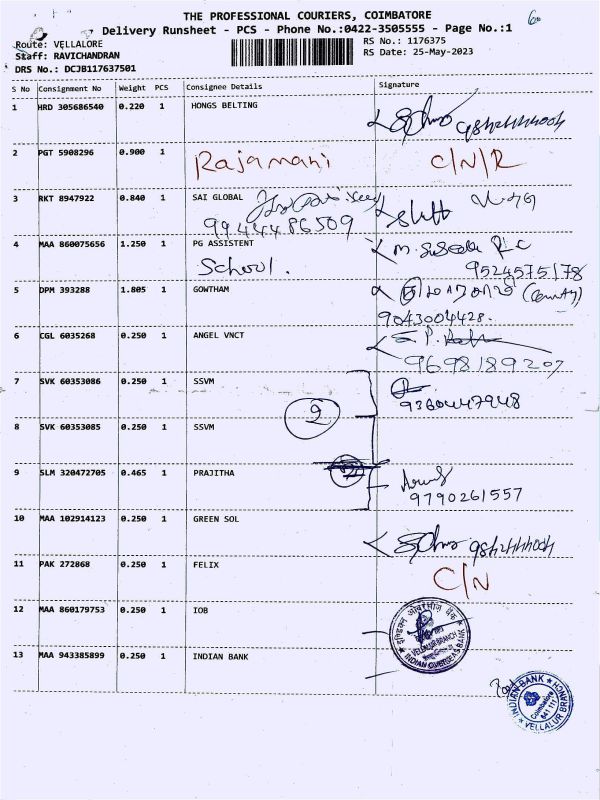 THE PROFESSIONAL COURIERS, COIMBATORE
Delivery Runsheet - PCS - Phone No.:0422-3505555 - Page No.:1
Route: VELLALORE
RS No.: 1176375
Staff: RAVICHANDRAN
RS Date: 25-May-2023
DRS No.: DCJB117637501
S No Consignment No Weight PCS Consignee Details Signature
1 HRD 305686540 0.220 1 HONGS BELTING
2 PGT 5908296 0.900 1 Rajamani C/N/R
3 RKT 8947922 0.840 1 SAI GLOBAL
9944486509
4 MAA 860075656 1.250 1 PG ASSISTENT
School. 9524575178
5 DPM 393288 1.805 1 GOWTHAM
9043004428.
6 CGL 6035268 0.250 1 ANGEL VNCT
9698189207
7 SVK 60353086 0.250 1 SSVM
9360447948
2
8 SVK 60353085 0.250 1 SSVM
9 SLM 320472705 0.465 1 PRAJITHA
9790261557
10 MAA 102914123 0.250 1 GREEN SOL
11 PAK 272868 0.250 1 FELIX C/N
12 MAA 860179753 0.250 1 IOB
इण्डियन ओवरसीज़ बैंक
VELLALUR BRANCH
INDIAN OVERSEAS BANK
13 MAA 943385899 0.250 1 INDIAN BANK
INDIAN BANK
Coimbatore
641 111
VELLALUR BRANCH